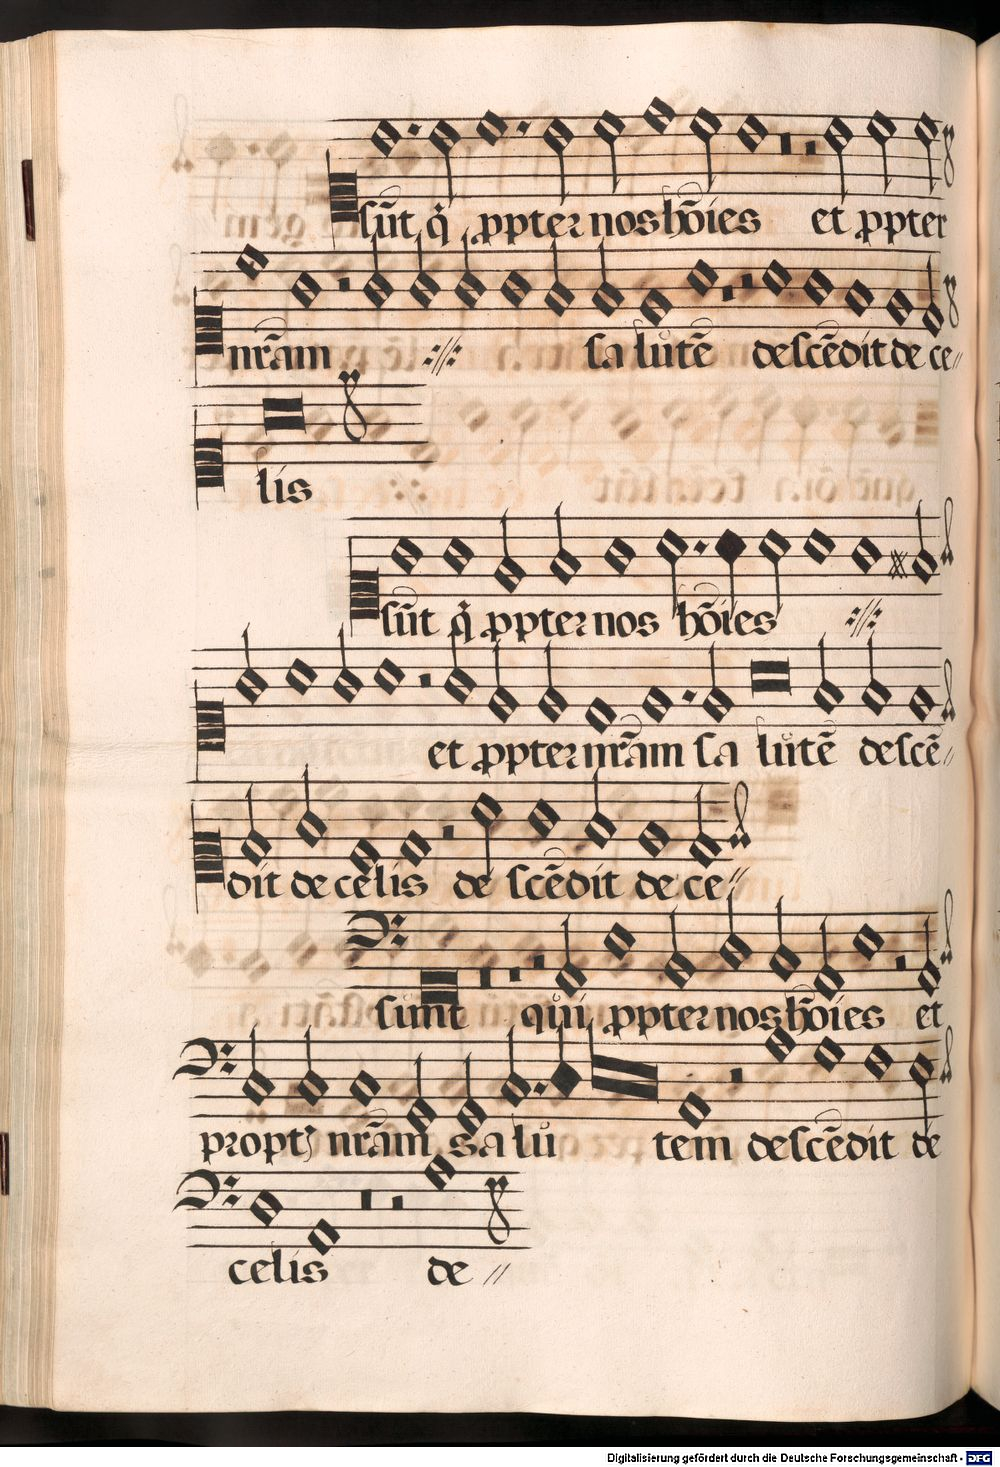 sūt q̇ ꝓpter nos hōies et ꝓpter
nr̄am ://: salutē descēdit de ce//
lis
sūt q̇ ꝓpter nos hōies ://:
et ꝓpter nr̄am salutē descē//
dit de celis descēdit de ce//
sunt qui ꝓpter nos hōies et
propt̄ nr̄am salu tem descēdit de
celis de //
Digitalisierung gefördert durch die Deutsche Forschungsgemeinschaft - DFG